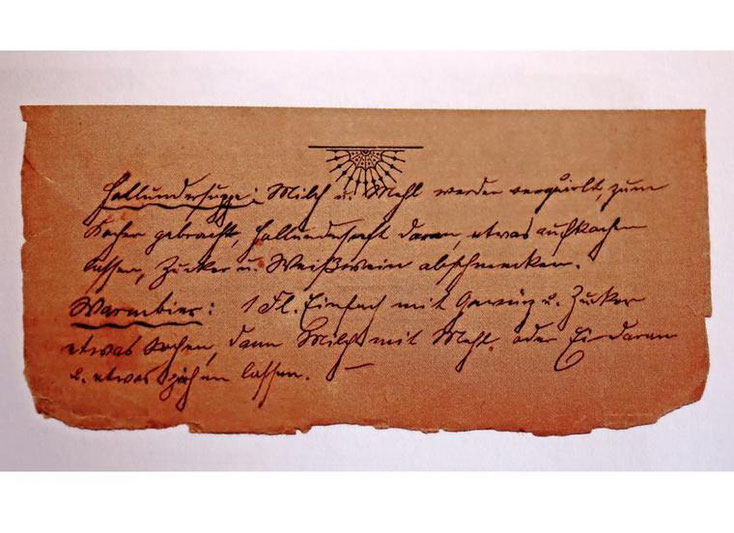 Hollundersuppe: Milch u. Mehl werden verquirlt, zum
Kochen gebracht, Hollundersaft daran, etwas aufkochen
lassen, Zucker u. Weißwein abschmecken.
Warmbier: 1 Fl. Einfach mit Gewürz u. Zucker
etwas kochen, dann Milch mit Mehl oder Ei daran
u. etwas ziehen lassen. —